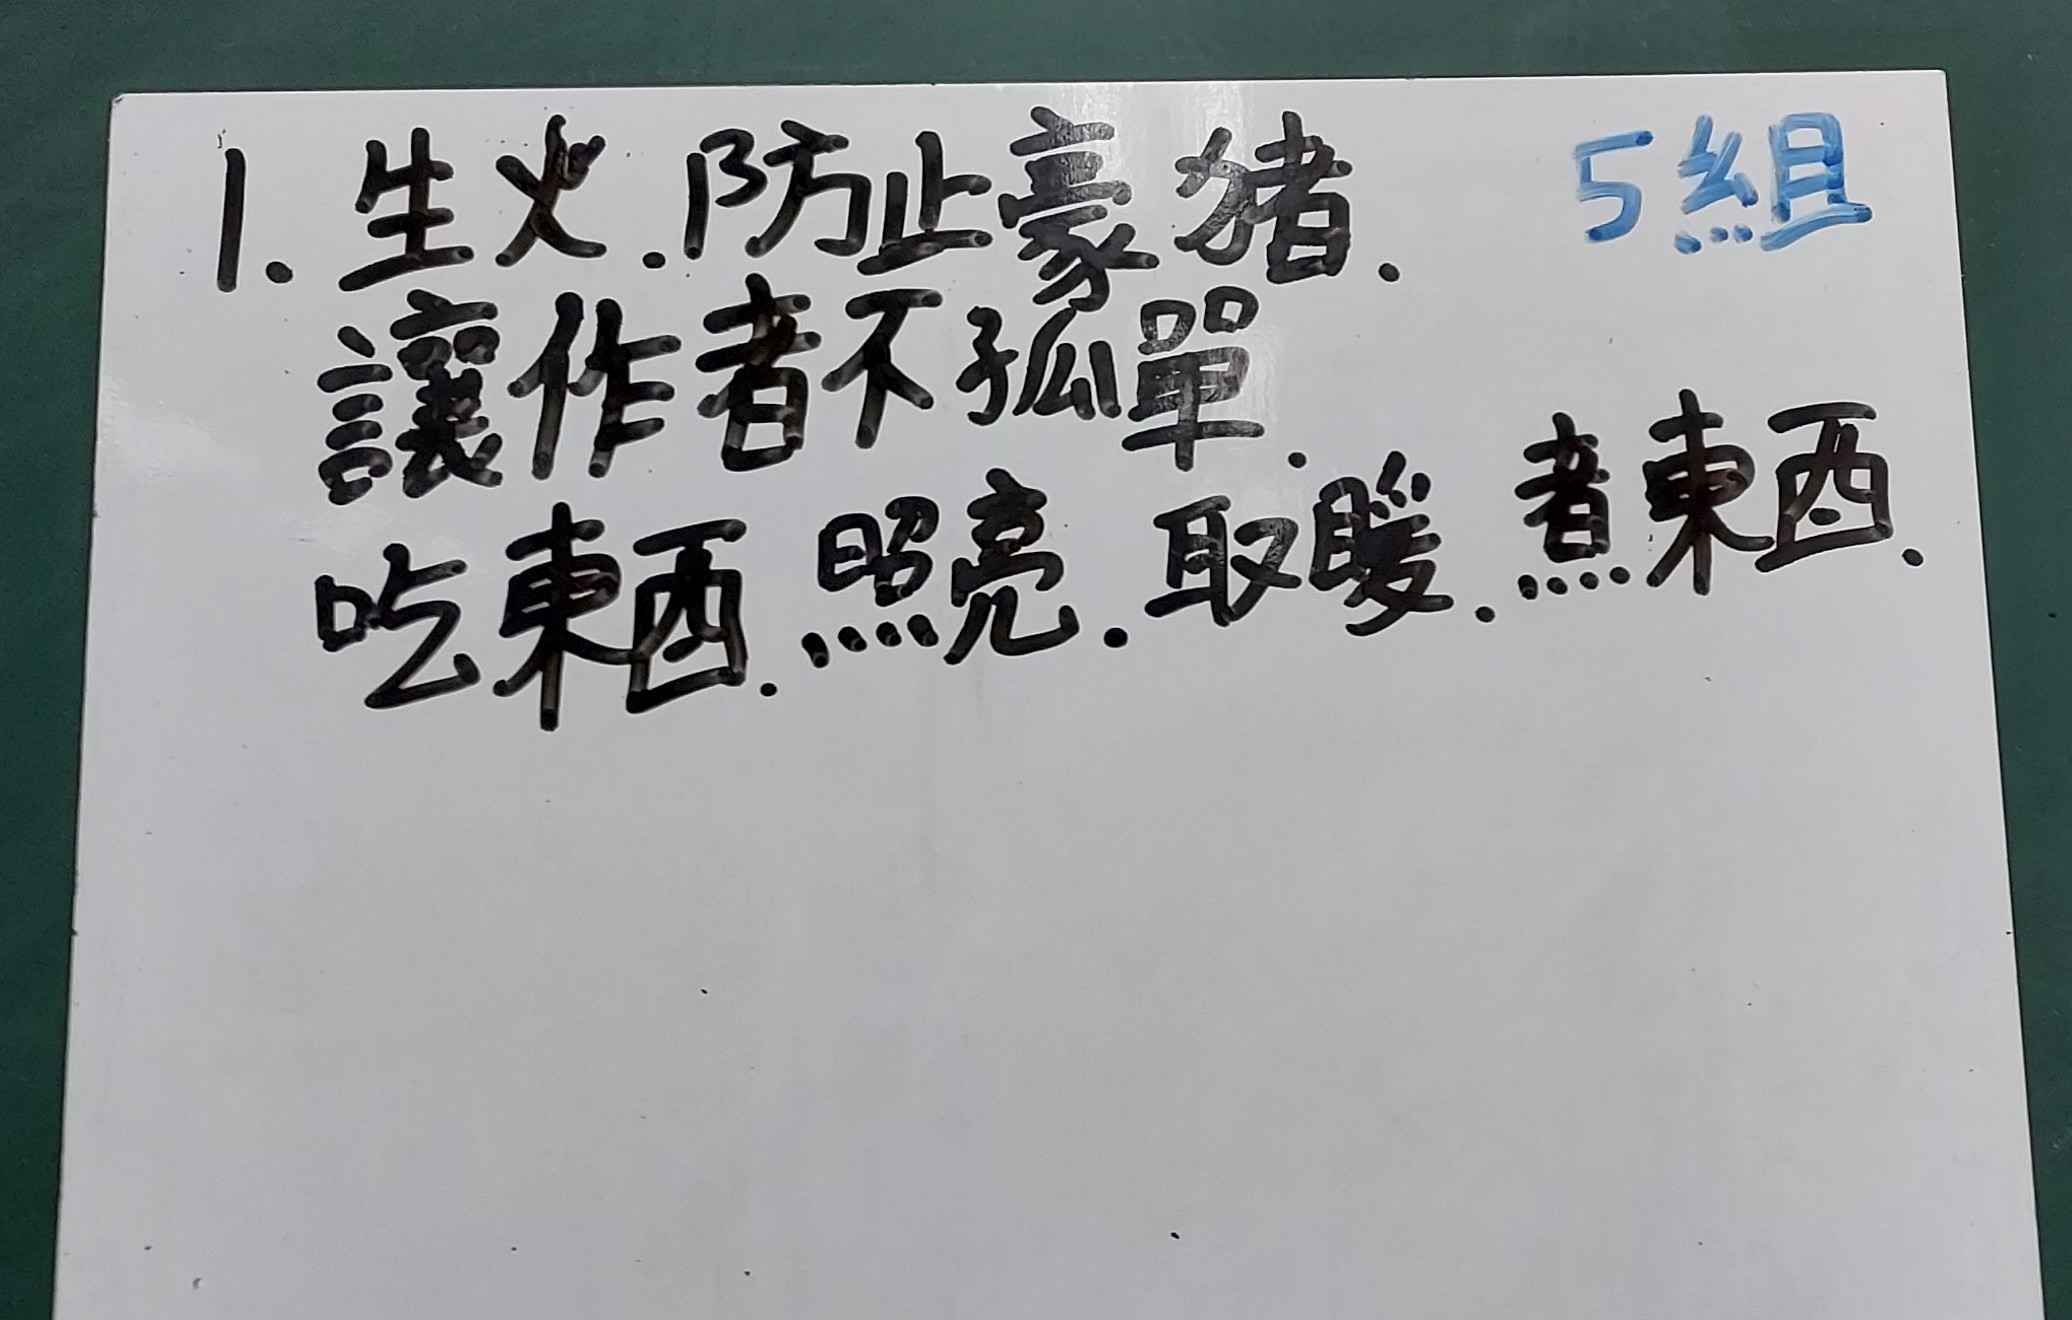 1. 生火.防止豪猪. 5組
讓作者不孤單.
吃東西.照亮.取暖.煮東西.